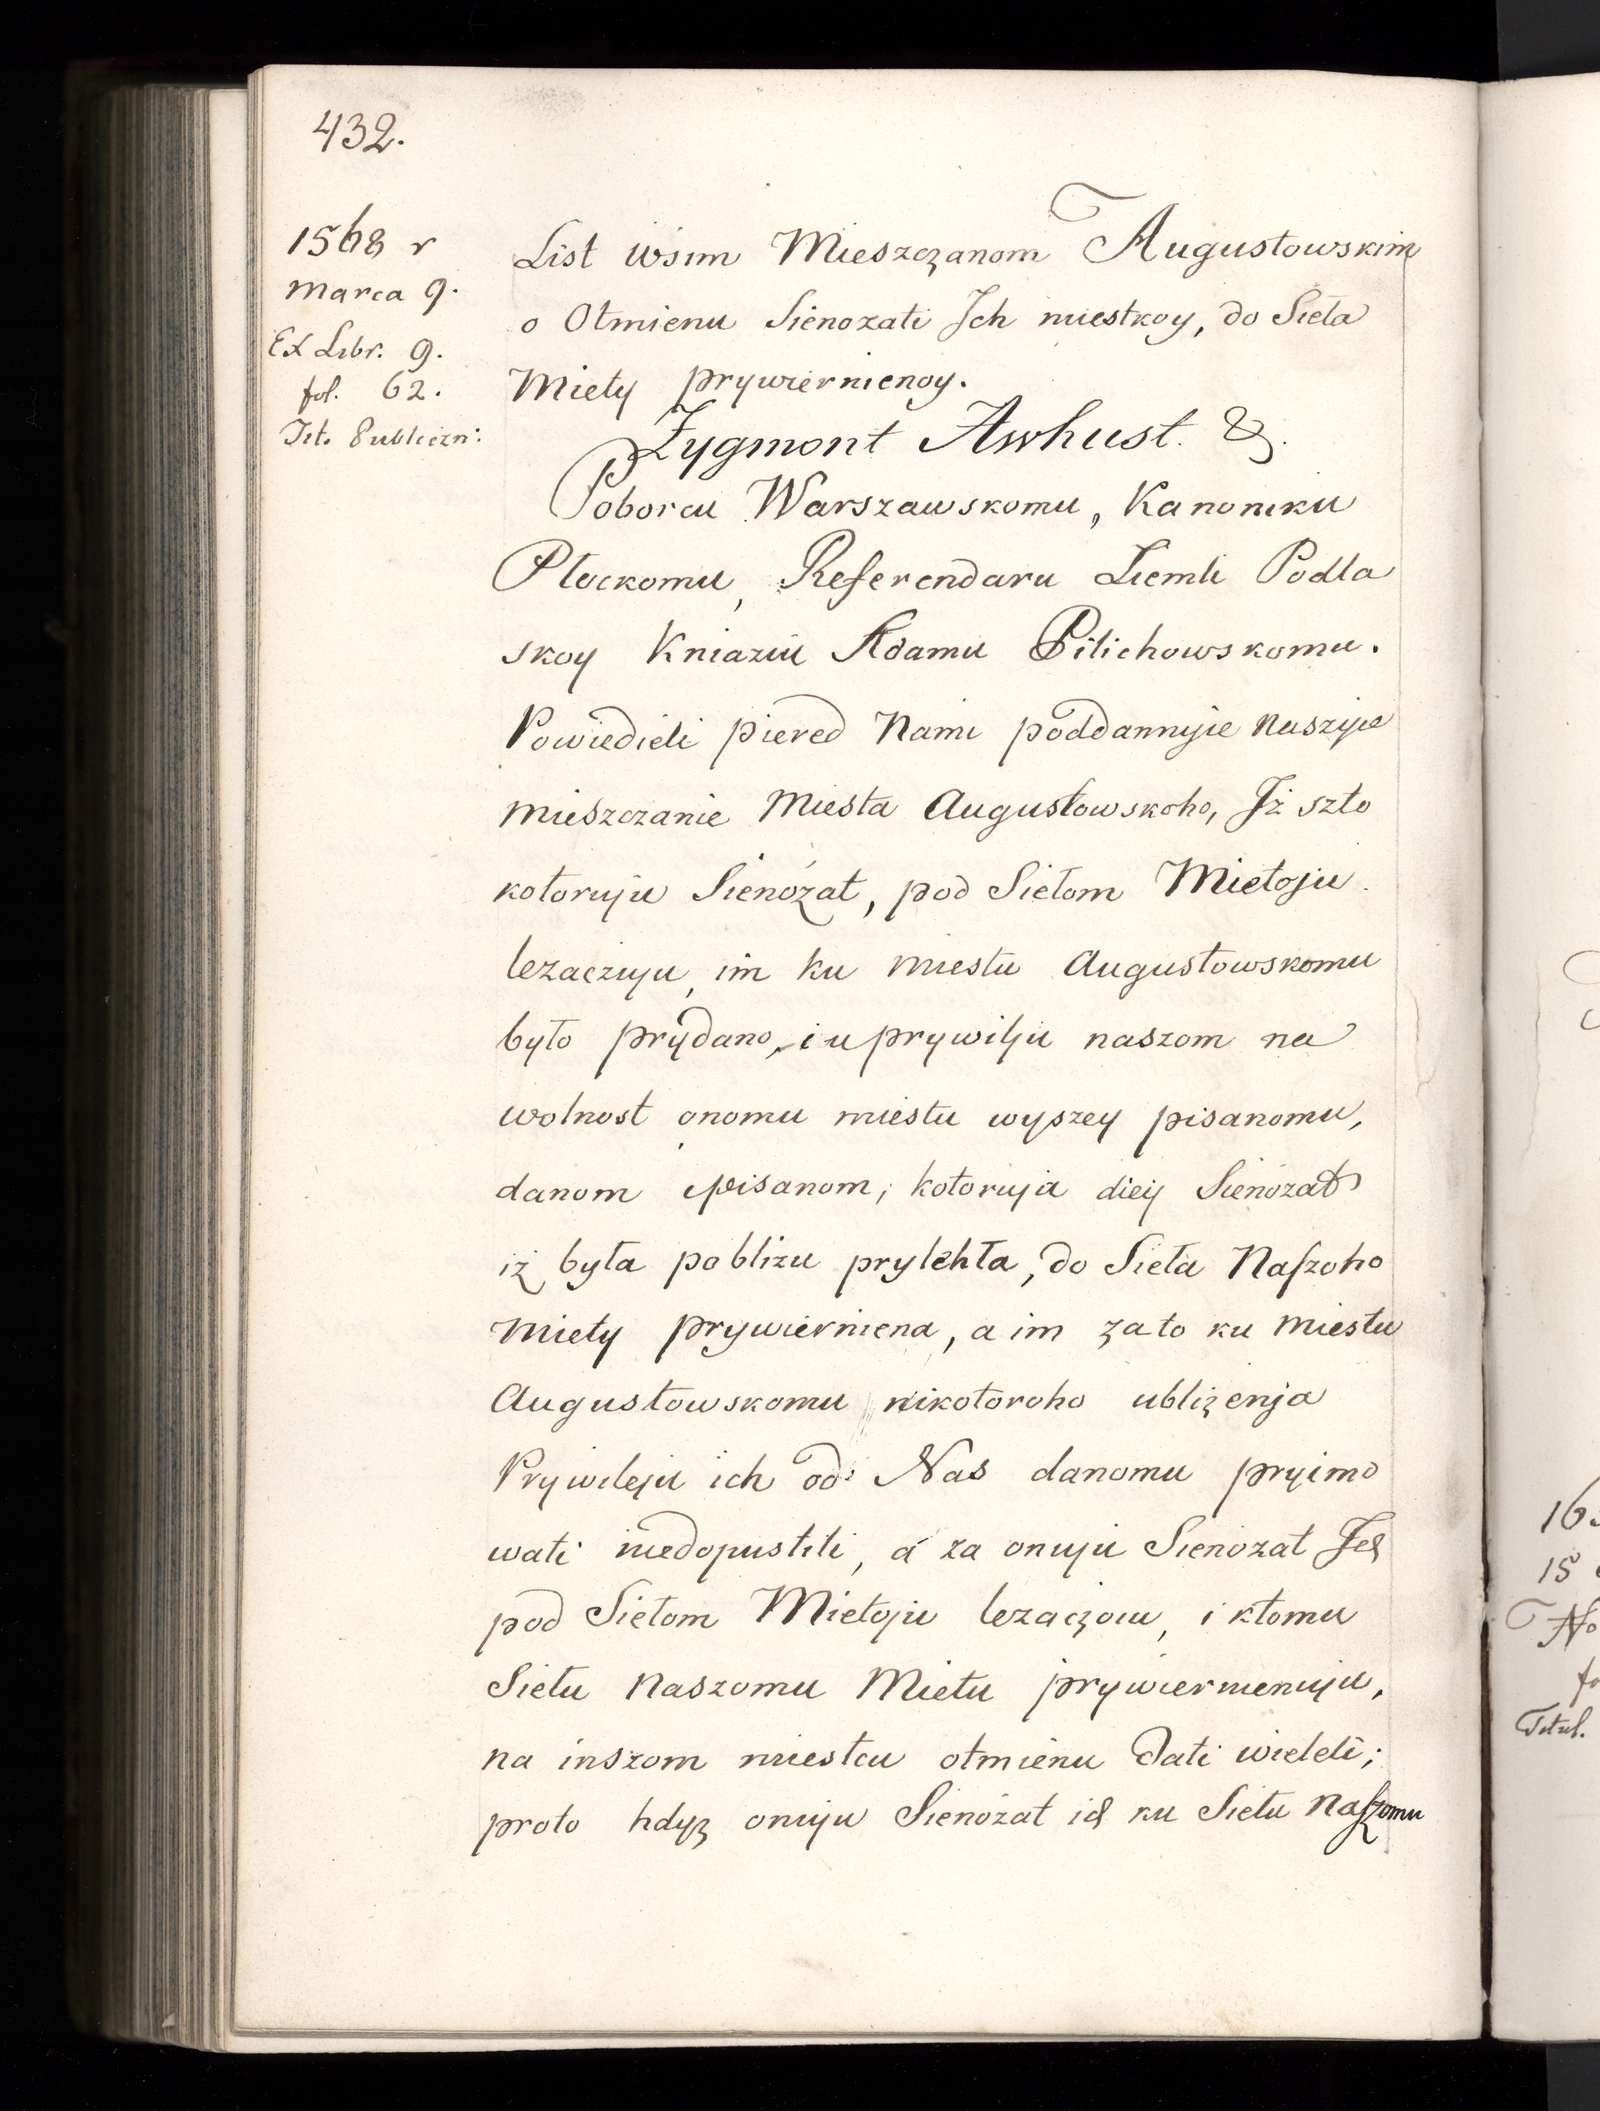 432.
1568 r
Marca 9.
Ex Libr. 9.
fol. 62.
Tit. Publiczn:
List wsim Mieszczanom Augustowskim
o Otmienu Sienozati Ich miestkoy, do Sieła
Mięty prywiernienoy.
Zygmont Awhust. &.
Poborcu Warszawskomu, Kanoniku
Płockomu, Referendaru Ziemli Podla
skoy Kniaziu Adamu Pilichowskomu.
Powiedieli piered Nami poddannyie naszyie
mieszczanie Miesta Augustowskoho, Iż szto
kotoruju Sienożat, pod Siełom Mietoju
lezaczuju, im ku miestu Augustowskomu
było prydano, i u prywilju naszom na
wolnost onomu miestu wyszey pisanomu,
danom opisanom; kotoruja diey Sienożat
iż była poblizu prylehła, do Sieła Naszoho
Miety prywierniena, a im zato ku miestu
Augustowskomu nikotoroho ubliżenja
Prywileju ich od Nas danomu pryimo
wati niedopustili, a za onuju Sienożat
pod Siełom Mietoju lezaczoiu, i ktomu
Siełu Naszomu Mietu prywiernienuju,
na inszom miestcu otmienu dati wieleli;
proto hdyż onuju Sienożat ich ku Siełu Naszomu
163
15
No
fo
Titul.